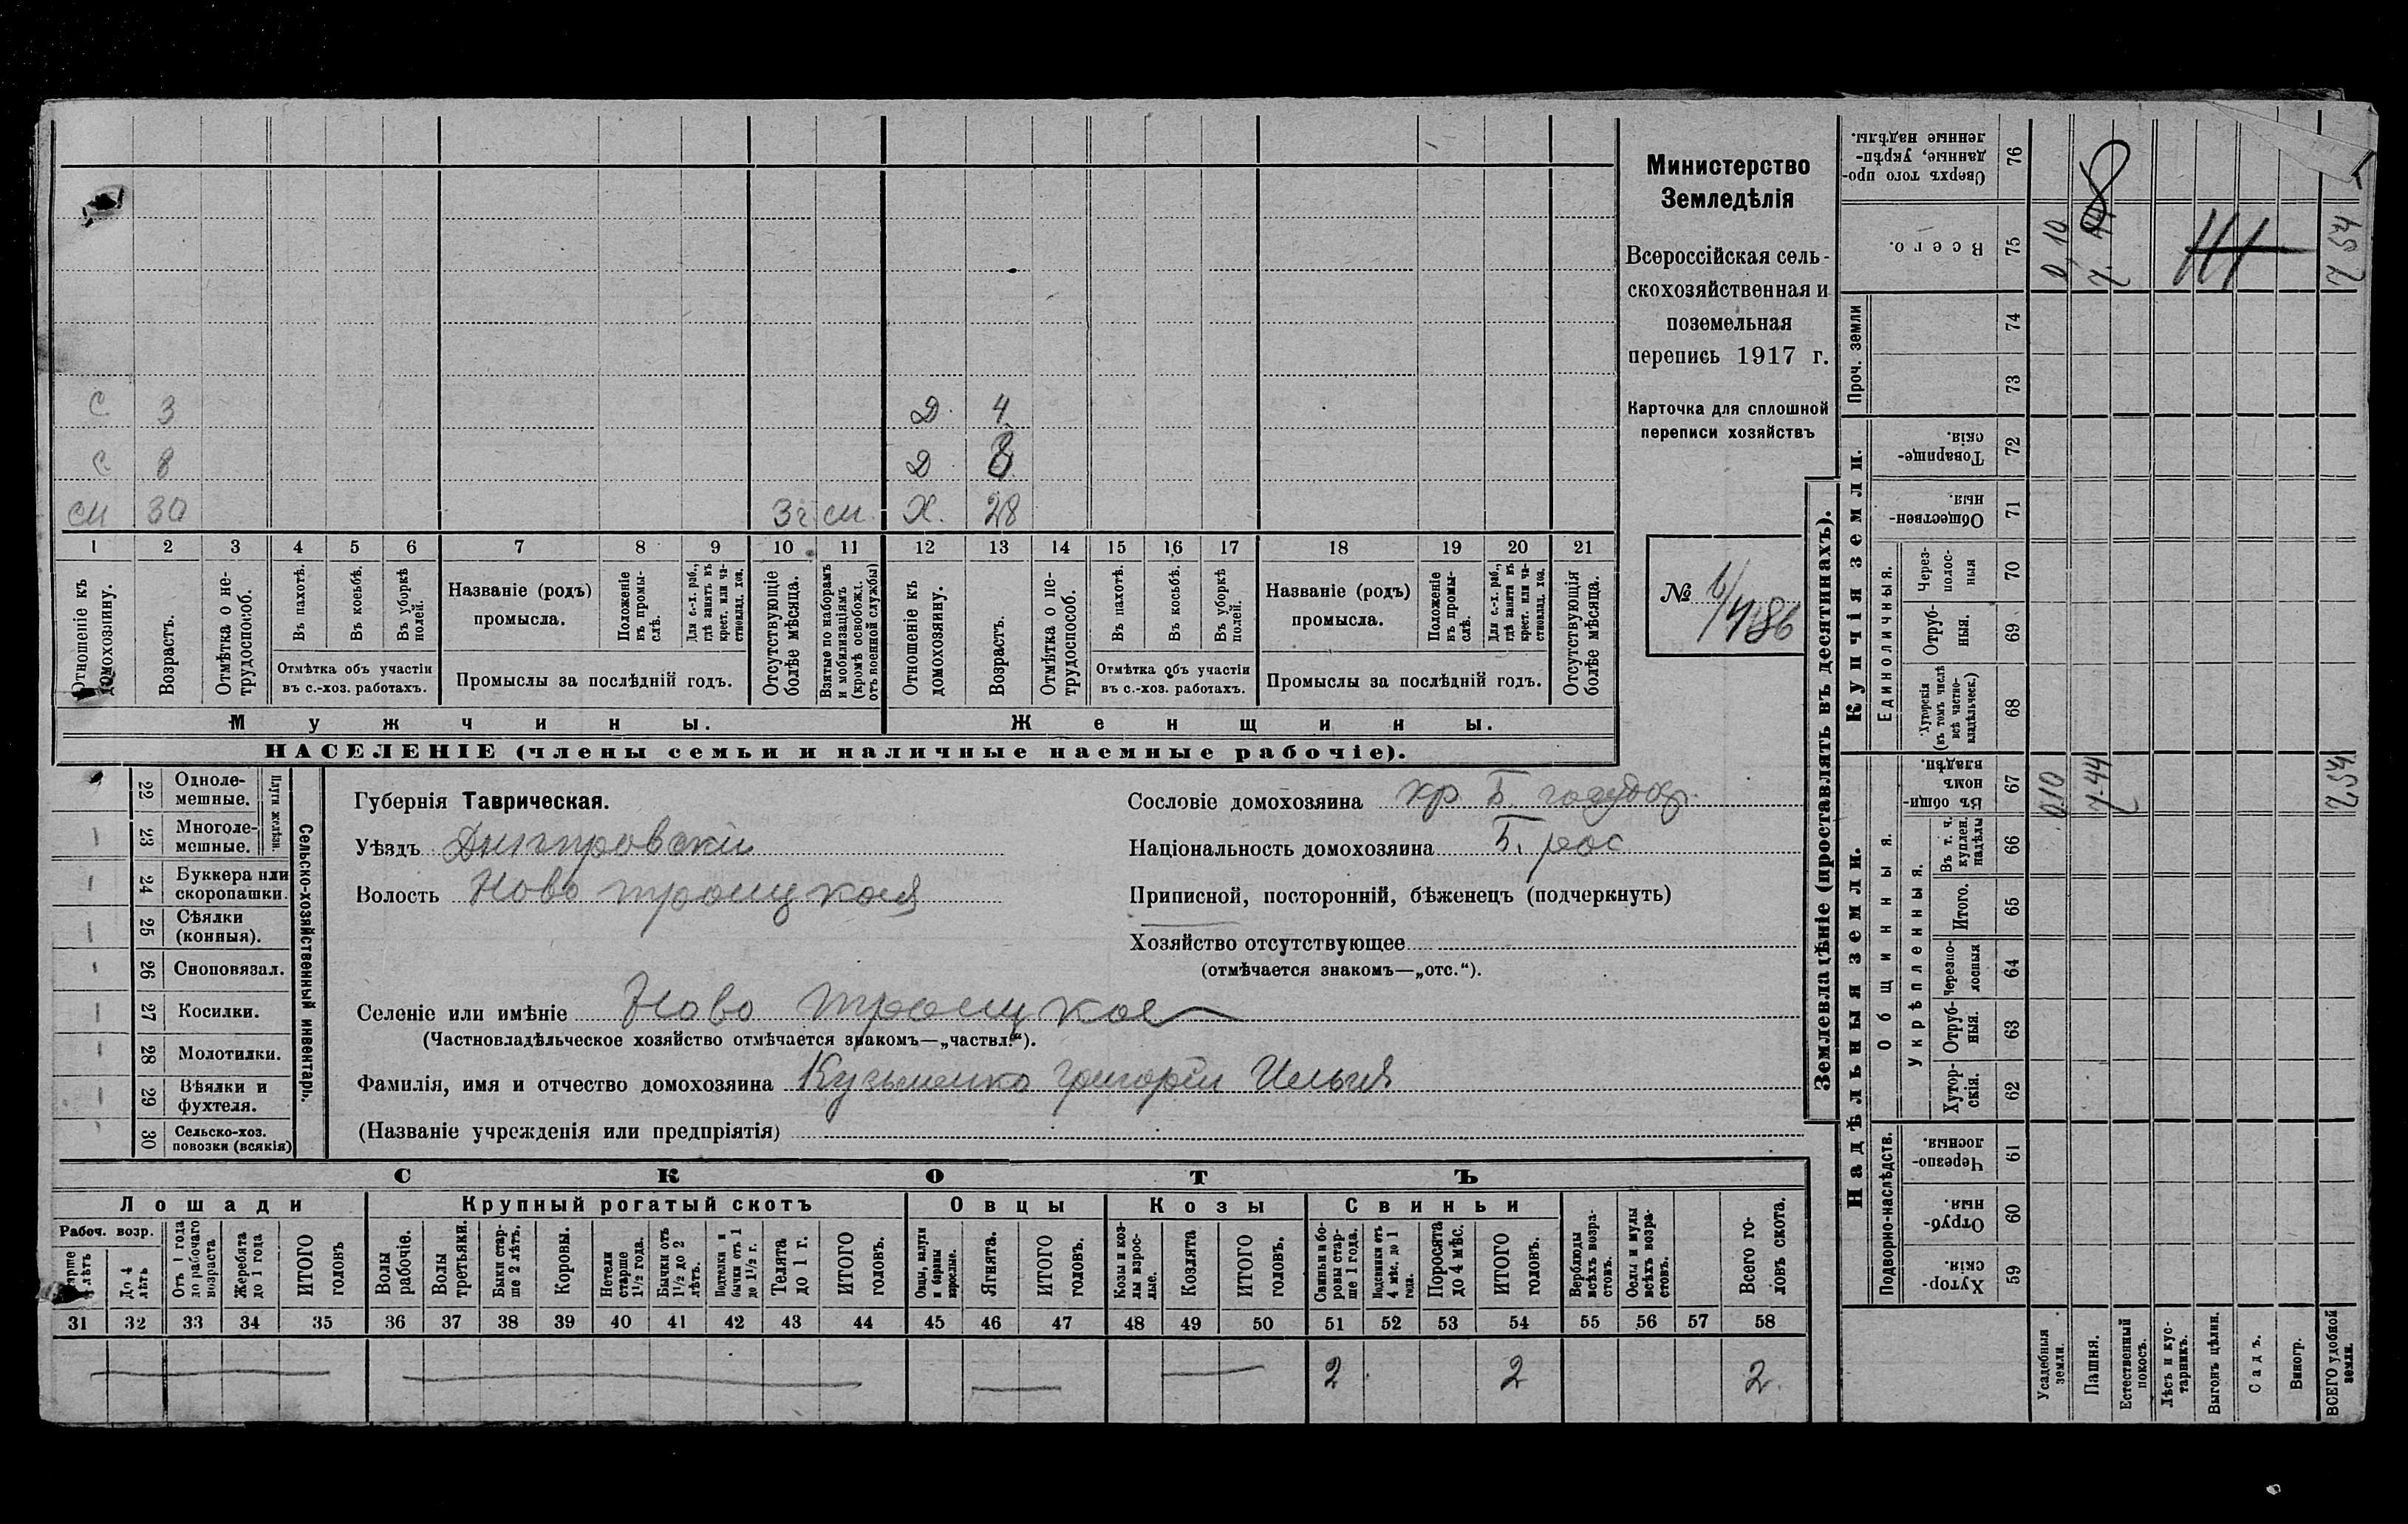 Министерство
Земледѣлія
Всероссійская сель-
скохозяйственная и
поземельная
перепись 1917 г.
Карточка для сплошной
переписи хозяйствъ
№ 1/1486
С 3 Д. 4
С 8 Д 8
см 30 3 г. см. Х. 28
1 2 3 4 5 6 7 8 9 10 11 12 13 14 15 16 17 18 19 20 21
Отношеніе къ домохозяину.
Возрастъ.
Отмѣтка о не-трудоспособ.
Въ пахотѣ.
Въ косьбѣ.
Въ уборкѣ полей.
Отмѣтка объ участіи
въ с.-хоз. работахъ.
Названіе (родъ)
промысла.
Положеніе въ промы-слѣ.
Для с.-х. раб., гдѣ занятъ въ крест. или ча-стновлад. хоз.
Промыслы за послѣдній годъ.
Отсутствующіе болѣе мѣсяца.
Взятые по наборамъ и мобилизаціямъ (кромѣ освобожд. отъ военной службы)
Отношеніе къ домохозяину.
Возрастъ.
Отмѣтка о не-трудоспособ.
Въ пахотѣ.
Въ косьбѣ.
Въ уборкѣ полей.
Отмѣтка объ участіи
въ с.-хоз. работахъ.
Названіе (родъ)
промысла.
Положеніе въ промы-слѣ.
Для с.-х. раб., гдѣ занята въ крест. или ча-стновлад. хоз.
Промыслы за послѣдній годъ.
Отсутствующія болѣе мѣсяца.
Мужчины. Женщины.
НАСЕЛЕНІЕ (члены семьи и наличные наемные рабочіе).
Сельско-хозяйственный инвентарь.
Плуги желѣзн.
22 Одноле-мешные.
23 Многоле-мешные.
24 Буккера или скоропашки.
25 Сѣялки (конныя).
26 Сноповязал.
27 Косилки.
28 Молотилки.
29 Вѣялки и фухтеля.
30 Сельско-хоз. повозки (всякія)
Губернія Таврическая.
Уѣздъ Днипровскій
Волость Ново троицкая
Селеніе или имѣніе Ново троицкое
(Частновладѣльческое хозяйство отмѣчается знакомъ—„частвл.“).
Фамилія, имя и отчество домохозяина Кузьменко Григорій Ильич
(Названіе учрежденія или предпріятія)
Сословіе домохозяина кр Б. государ.
Національность домохозяина Б. рос
Приписной, посторонній, бѣженецъ (подчеркнуть)
Хозяйство отсутствующее
(отмѣчается знакомъ—„отс.“).
СКОТЪ
Лошади Крупный рогатый скотъ Овцы Козы Свиньи
Рабоч. возр.
Старше 4 лѣтъ
До 4 лѣтъ
Отъ 1 года до рабочаго возраста
Жеребята до 1 года
ИТОГО головъ
Волы рабочіе.
Волы третьяки.
Быки стар-ше 2 лѣтъ.
Коровы.
Нетели старше 1½ года.
Бычки отъ 1½ до 2 лѣтъ.
Подтелки и бычки отъ 1 до 1½ г.
Телята до 1 г.
ИТОГО головъ.
Овцы, валухи и бараны взрослые.
Ягнята.
ИТОГО головъ.
Козы и коз-лы взрос-лые.
Козлята
ИТОГО головъ.
Свиньи и бо-ровы стар-ше 1 года.
Подсвинки отъ 4 мѣс. до 1 года.
Поросята до 4 мѣс.
ИТОГО головъ.
Верблюды всѣхъ возра-стовъ.
Ослы и мулы всѣхъ возра-стовъ.
Всего го-ловъ скота.
31 32 33 34 35 36 37 38 39 40 41 42 43 44 45 46 47 48 49 50 51 52 53 54 55 56 57 58
2 2 2
Землевладѣніе (проставлять въ десятинахъ).
Надѣльныя земли.
Купчія земли.
Проч. земли
Подворно-наслѣдств.
Общинныя.
Укрѣпленныя.
Единоличныя.
Сверхъ того про-данные, укрѣп-ленные надѣлы. 76
Всего. 75 0,10 7.44 7 54
74
73
Товарище-скія. 72
Обществен-ныя. 71
Через-полос-ныя 70
Отруб-ныя. 69
Хуторскія (въ томъ числѣ всѣ частно-владѣльческ.) 68
Въ общин-номъ владѣн. 67 0,10 7.44 7.54
Въ т. ч. куплен. надѣлы 66
Итого. 65
Черезпо-лосныя 64
Отруб-ныя. 63
Хутор-скія. 62
Черезпо-лосныя. 61
Отруб-ныя. 60
Хутор-скія. 59
Усадебныя земли.
Пашня.
Естественный покосъ.
Лѣсъ и кус-тарникъ.
Выгонъ цѣлин.
Садъ.
Виногр.
ВСЕГО удобной земли.